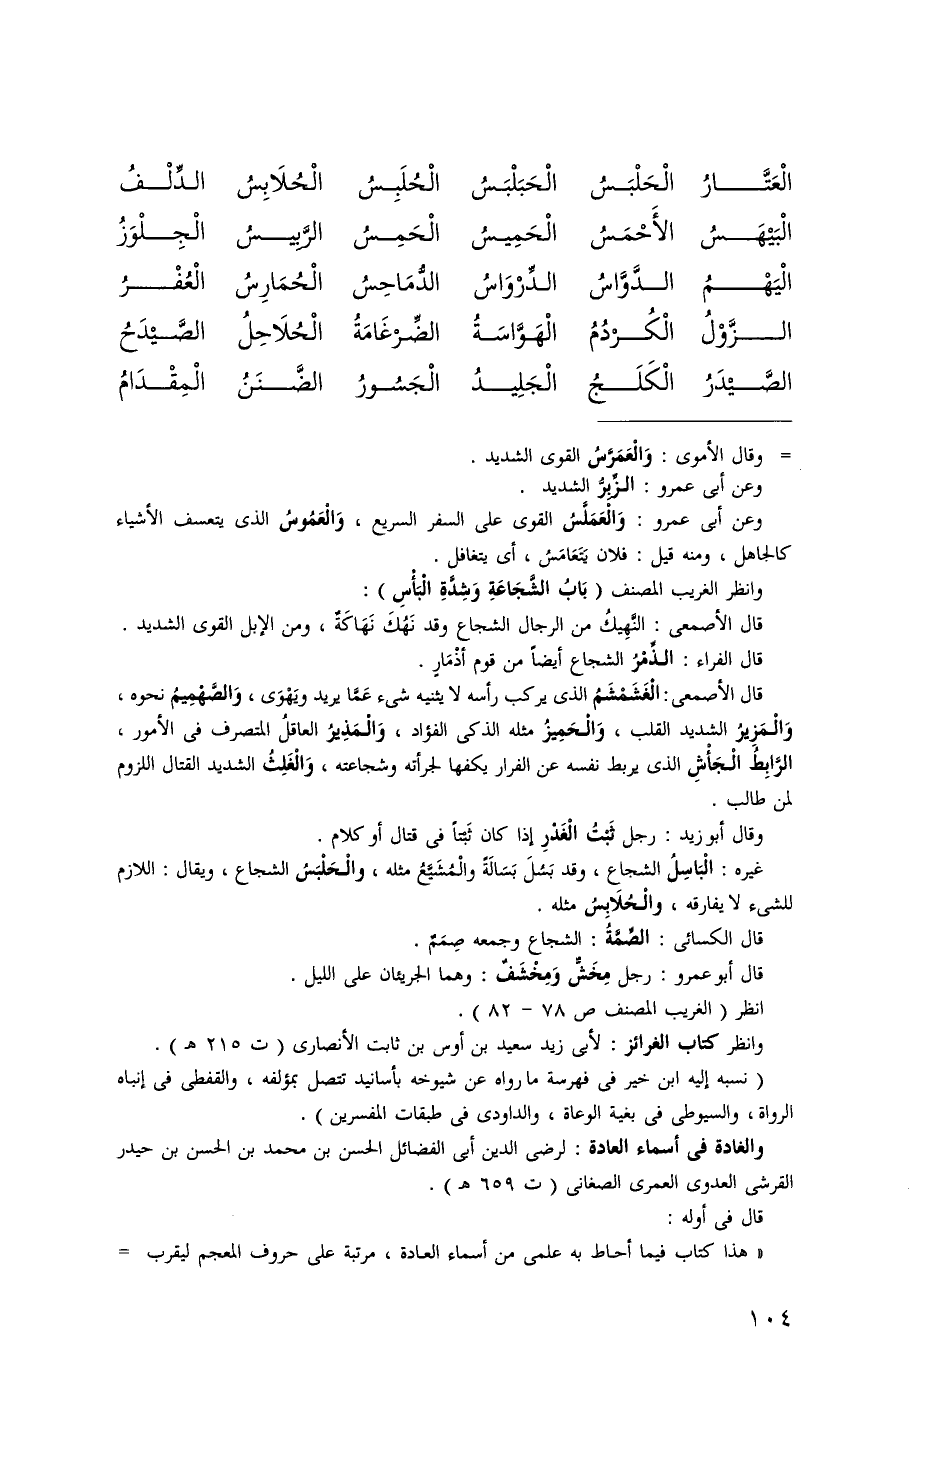 الْعَتَّارُ الْحَلْبَسُ الْحَبَلْبَسُ الْحُلَبِسُ الْحُلَابِسُ الدِّلْفُ
الْبَيْهَسُ الأَحْمَسُ الْحَمِيسُ الْحَمِسُ الرَّبِيسُ الْجِلْوَزُ
الْيَهْمُ الدَّوَّاسُ الدِّرْوَاسُ الدُّمَاحِسُ الْحُمَارِسُ الْعُفْرُ
الزَّوْلُ الْكُرْدُمُ الْهَوَّاسَةُ الضِّرْغَامَةُ الْحُلَاحِلُ الصَّيْدَحُ
الصَّيْدَرُ الْكَلَجُ الْجَلِيدُ الْجَسُورُ الصَّنَنُ الْمِقْدَامُ
= وقال الأموى : وَالْعَمَرَّسُ القوى الشديد .
وعن أبى عمرو : الزِّبِرُّ الشديد .
وعن أبى عمرو : وَالْعَمَلَّسُ القوى على السفر السريع ، وَالْعَمُوسُ الذى يتعسف الأشياء
كالجاهل ، ومنه قيل : فلان يَتَعَامَسُ ، أى يتغافل .
وانظر الغريب المصنف ( بَابُ الشَّجَاعَةِ وَشِدَّةِ الْبَأْسِ ) :
قال الأصمعى : النَّهِيكُ من الرجال الشجاع وقد نَهُكَ نَهَاكَةً ، ومن الإبل القوى الشديد .
قال الفراء : الذِّمْرُ الشجاع أيضاً من قوم أَذْمَارٍ .
قال الأصمعى : الْغَشَمْشَمُ الذى يركب رأسه لا يثنيه شىء عَمَّا يريد ويَهْوَى ، وَالصَّهْمِيمُ نحوه ،
وَالْمَزِيرُ الشديد القلب ، وَالْحَمِيزُ مثله الذكى الفؤاد ، وَالْمَذِيرُ العاقلُ المتصرف فى الأمور ،
الرَّابِطُ الْجَأْشِ الذى يربط نفسه عن الفرار يكفها لجرأته وشجاعته ، وَالْغَلِثُ الشديد القتال اللزوم
لمن طالب .
وقال أبو زيد : رجل ثَبْتُ الْغَدْرِ إذا كان ثَبْتاً فى قتال أو كلام .
غيره : الْبَاسِلُ الشجاع ، وقد بَسُلَ بَسَالَةً والْمُشَيَّعُ مثله ، والْحَلْبَسُ الشجاع ، ويقال : اللازم
للشىء لا يفارقه ، والْحُلَابِسُ مثله .
قال الكسائى : الصِّمَّةُ : الشجاع وجمعه صِمَمٌ .
قال أبو عمرو : رجل مِخَشٌّ وَمِخْشَفٌ : وهما الجريئان على الليل .
انظر ( الغريب المصنف ص ٧٨ - ٨٢ ) .
وانظر كتاب الغرائز : لأبى زيد سعيد بن أوس بن ثابت الأنصارى ( ت ٢١٥ هـ ) .
( نسبه إليه ابن خير فى فهرسة ما رواه عن شيوخه بأسانيد تتصل بمؤلفه ، والقفطى فى إنباه
الرواة ، والسيوطى فى بغية الوعاة ، والداودى فى طبقات المفسرين ) .
والغادة فى أسماء العادة : لرضى الدين أبى الفضائل الحسن بن محمد بن الحسن بن حيدر
القرشى العدوى العمرى الصغانى ( ت ٦٥٩ هـ ) .
قال فى أوله :
« هذا كتاب فيما أحاط به علمى من أسماء العادة ، مرتبة على حروف المعجم ليقرب =
١٠٤